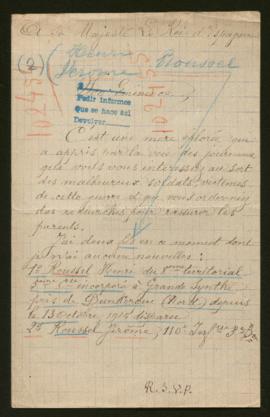 A Sa Majesté Le Roi d'Espagne
(2) Henri
Jérôme Roussel
102455
102455
Pedir informes
que se hace así
Devolver
C'est une mère éplorée qui
a appris par la voie des journaux
que vous vous intéressez au sort
des malheureux soldats, victimes
de cette guerre et que vous ordonnez
des recherches pour rassurer les
parents.
J'ai deux fils en ce moment dont
je n'ai aucune nouvelle:
1º Roussel Henri du 8ème territorial
incorporé à Grande Synthe
près de Dunkerque (Nord) depuis
le 13 Octobre 1914 disparu
2º Roussel Jérôme, 110e Inf
R.S.V.P.